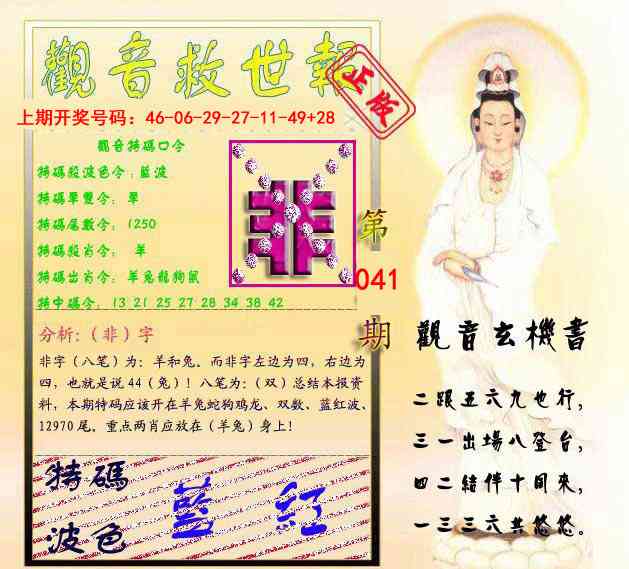 觀音救世報
正版
上期开奖号码：46-06-29-27-11-49+28
觀音特碼口令
特碼殺波色令：藍波
特碼單雙令：單
特碼尾數令：1250
特碼殺肖令：羊
特碼出肖令：羊兔龍狗鼠
特中碼令：13 21 25 27 28 34 38 42
非
第
041
期
分析:（非）字
非字（八笔）为：羊和兔．而非字左边为四，右边为
四，也就是说44（兔）！八笔为：（双）总结本报资
料，本期特码应该开在羊兔蛇狗鸡龙、双数、蓝红波、
12970尾．重点两肖应放在（羊兔）身上！
特碼
波色
藍 紅
觀音玄機書
二跟五六九也行，
三一出場八登台，
四二結伴十同來，
一三三六共悠悠。